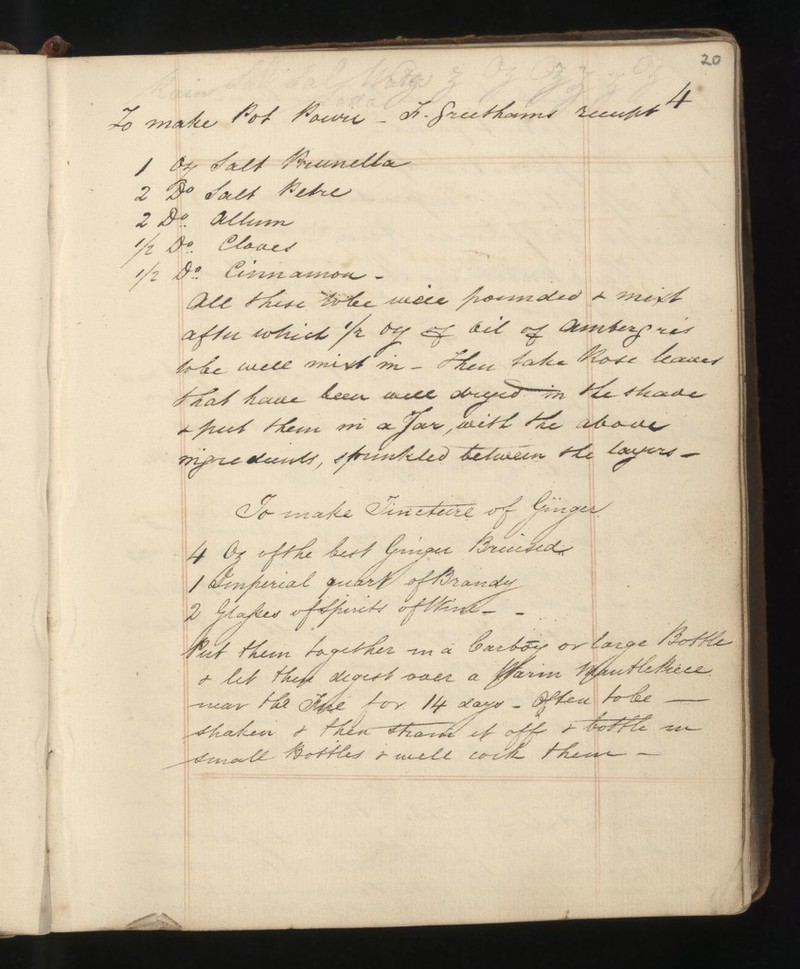 20
4
To make Pot Pourie - F. Greethams receipt
1 Oz Salt Prunella
2 Do Salt Petre
2 Do. Allum
1/2 Do. Cloves
1/2 Do. Cinnamon -
All these to be well pounded & mixt
after which 1/2 oz of oil of Ambergris
to be well mixt in - Then take Rose leaves
that have been well dryed in the shade
& put them in a Jar, with the above
ingredients, sprinkled between the layers -
To make Tincture of Ginger
4 Oz of the best Ginger Bruised
1 Imperial quart of Brandy
2 Glasses of Spirits of Wine - -
Put them together in a Carboy or large Bottle
& let them digest over a Warm Mantlepiece
near the Fire for 14 days - Often to be —
shaken & then strain it off & bottle in
small Bottles & well cork them —